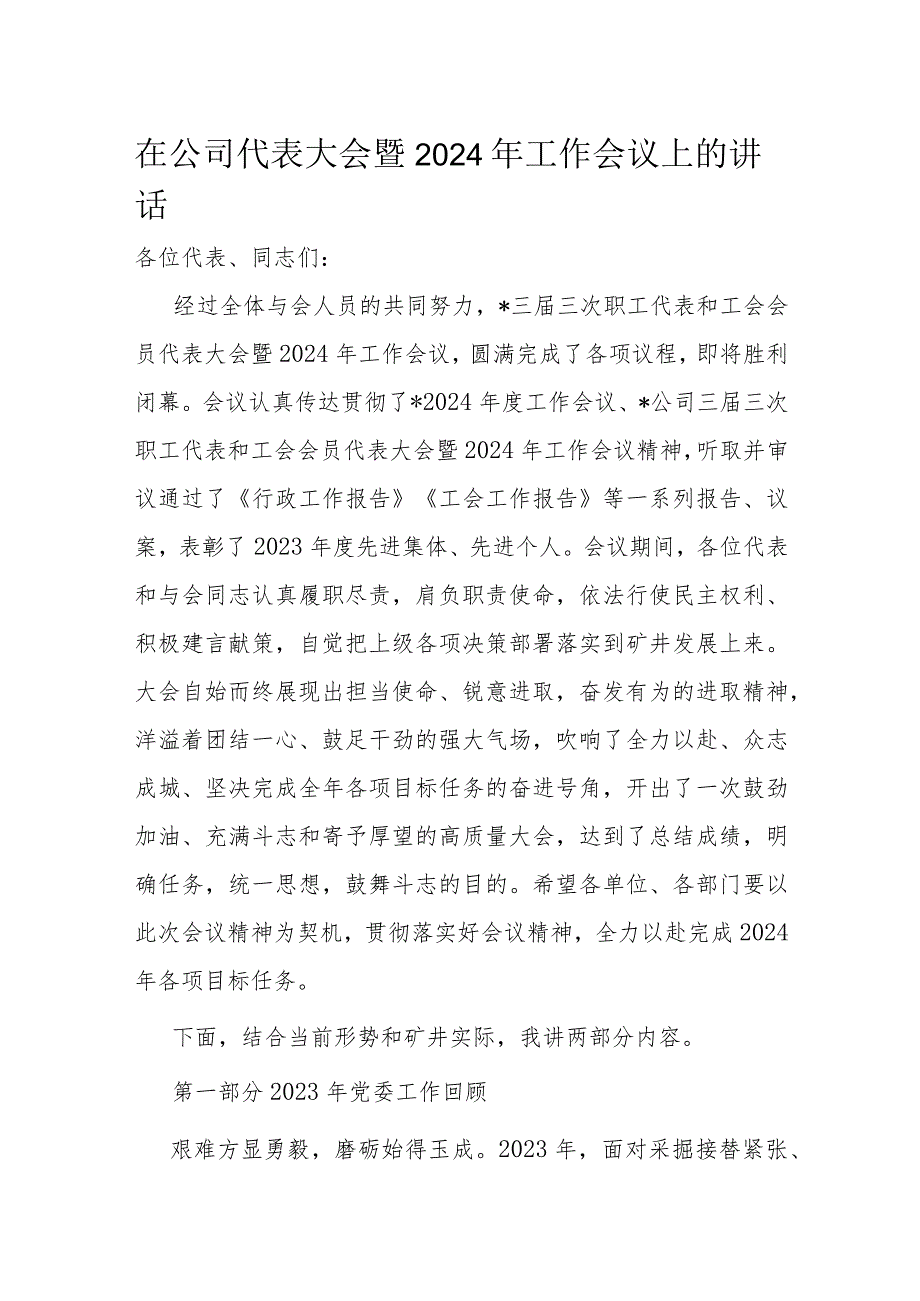 在公司代表大会暨 2024 年工作会议上的讲
话
各位代表、同志们：
经过全体与会人员的共同努力，*三届三次职工代表和工会会
员代表大会暨 2024 年工作会议，圆满完成了各项议程，即将胜利
闭幕。会议认真传达贯彻了*2024 年度工作会议、*公司三届三次
职工代表和工会会员代表大会暨 2024 年工作会议精神，听取并审
议通过了《行政工作报告》《工会工作报告》等一系列报告、议
案，表彰了 2023 年度先进集体、先进个人。会议期间，各位代表
和与会同志认真履职尽责，肩负职责使命，依法行使民主权利、
积极建言献策，自觉把上级各项决策部署落实到矿井发展上来。
大会自始而终展现出担当使命、锐意进取，奋发有为的进取精神，
洋溢着团结一心、鼓足干劲的强大气场，吹响了全力以赴、众志
成城、坚决完成全年各项目标任务的奋进号角，开出了一次鼓劲
加油、充满斗志和寄予厚望的高质量大会，达到了总结成绩，明
确任务，统一思想，鼓舞斗志的目的。希望各单位、各部门要以
此次会议精神为契机，贯彻落实好会议精神，全力以赴完成 2024
年各项目标任务。
下面，结合当前形势和矿井实际，我讲两部分内容。
第一部分 2023 年党委工作回顾
艰难方显勇毅，磨砺始得玉成。2023 年，面对采掘接替紧张、